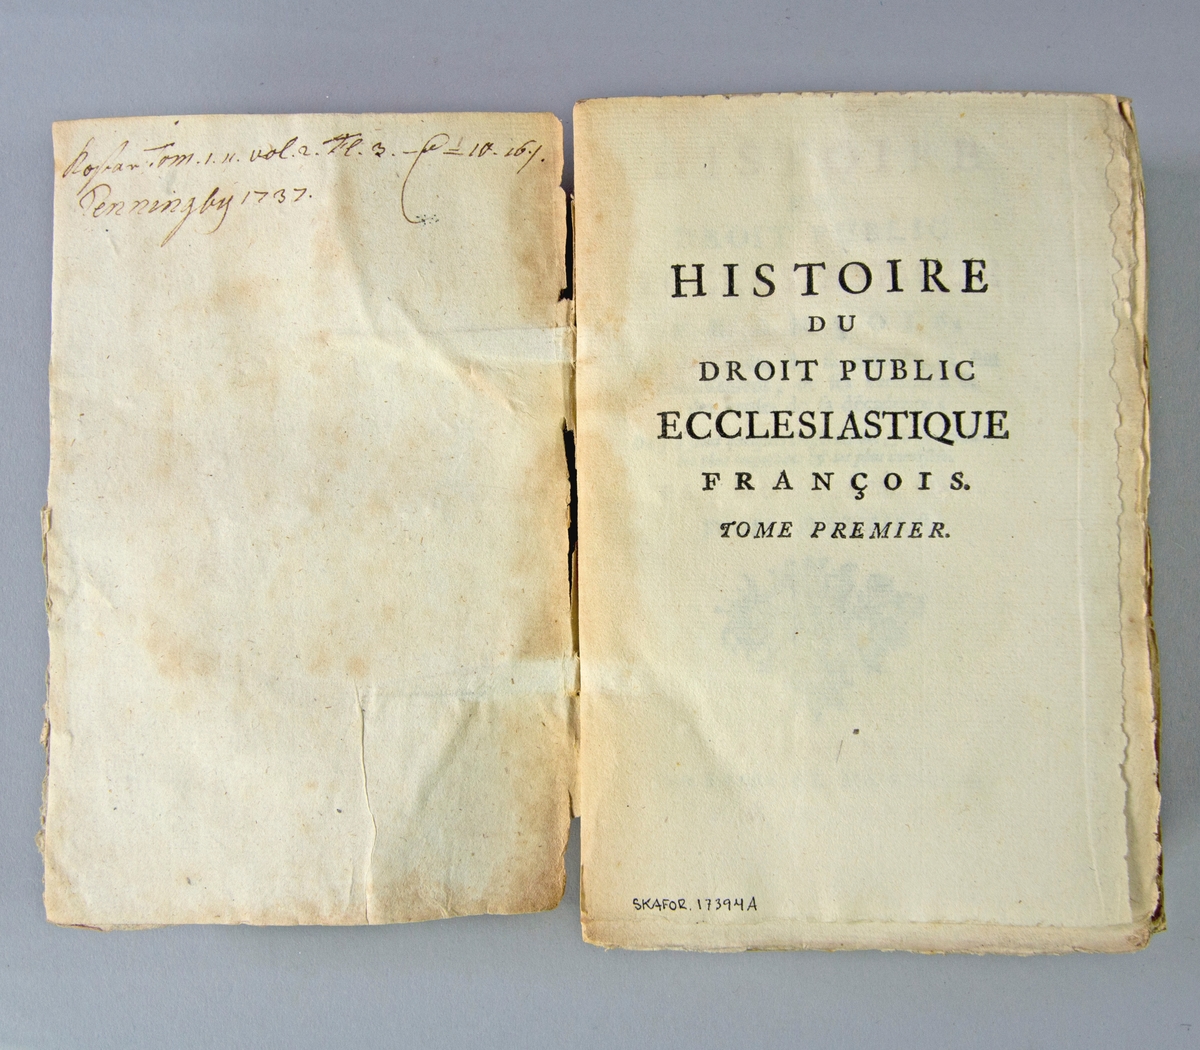 Kostar Tom. 1. 11. vol. 2. Fl. 3. 10. 16.
Penningby 1737.
HISTOIRE
DU
DROIT PUBLIC
ECCLESIASTIQUE
FRANÇOIS.
TOME PREMIER.
SKAFOR. 17394A